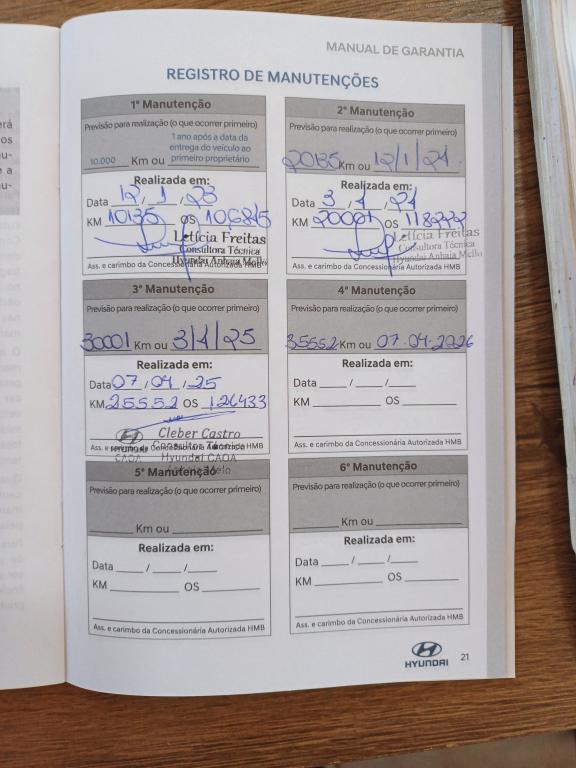 MANUAL DE GARANTIA
REGISTRO DE MANUTENÇÕES
1ª Manutenção
Previsão para realização (o que ocorrer primeiro)
10.000 Km ou 1 ano após a data da entrega do veículo ao primeiro proprietário
Realizada em:
Data 12 / 1 / 23
KM 10135 OS 106815
Letícia Freitas
Consultora Técnica
Hyundai Anhaia Mello
Ass. e carimbo da Concessionária Autorizada HMB
2ª Manutenção
Previsão para realização (o que ocorrer primeiro)
20135 Km ou 12/1/24.
Realizada em:
Data 3 / 1 / 24
KM 20001 OS
Letícia Freitas
Consultora Técnica
Hyundai Anhaia Mello
Ass. e carimbo da Concessionária Autorizada HMB
3ª Manutenção
Previsão para realização (o que ocorrer primeiro)
30001 Km ou 3/1/25
Realizada em:
Data 07 / 04 / 25
KM 25552 OS 126433
Cleber Castro
Consultor Técnico
HYUNDAI CAOA Hyundai CAOA
Ass. e carimbo da Concessionária Autorizada HMB
4ª Manutenção
Previsão para realização (o que ocorrer primeiro)
35552 Km ou 07.04.2026
Realizada em:
Data ____ / ____ / ____
KM ____ OS ____
Ass. e carimbo da Concessionária Autorizada HMB
5ª Manutenção
Previsão para realização (o que ocorrer primeiro)
____ Km ou ____
Realizada em:
Data ____ / ____ / ____
KM ____ OS ____
Ass. e carimbo da Concessionária Autorizada HMB
6ª Manutenção
Previsão para realização (o que ocorrer primeiro)
____ Km ou ____
Realizada em:
Data ____ / ____ / ____
KM ____ OS ____
Ass. e carimbo da Concessionária Autorizada HMB
HYUNDAI
21